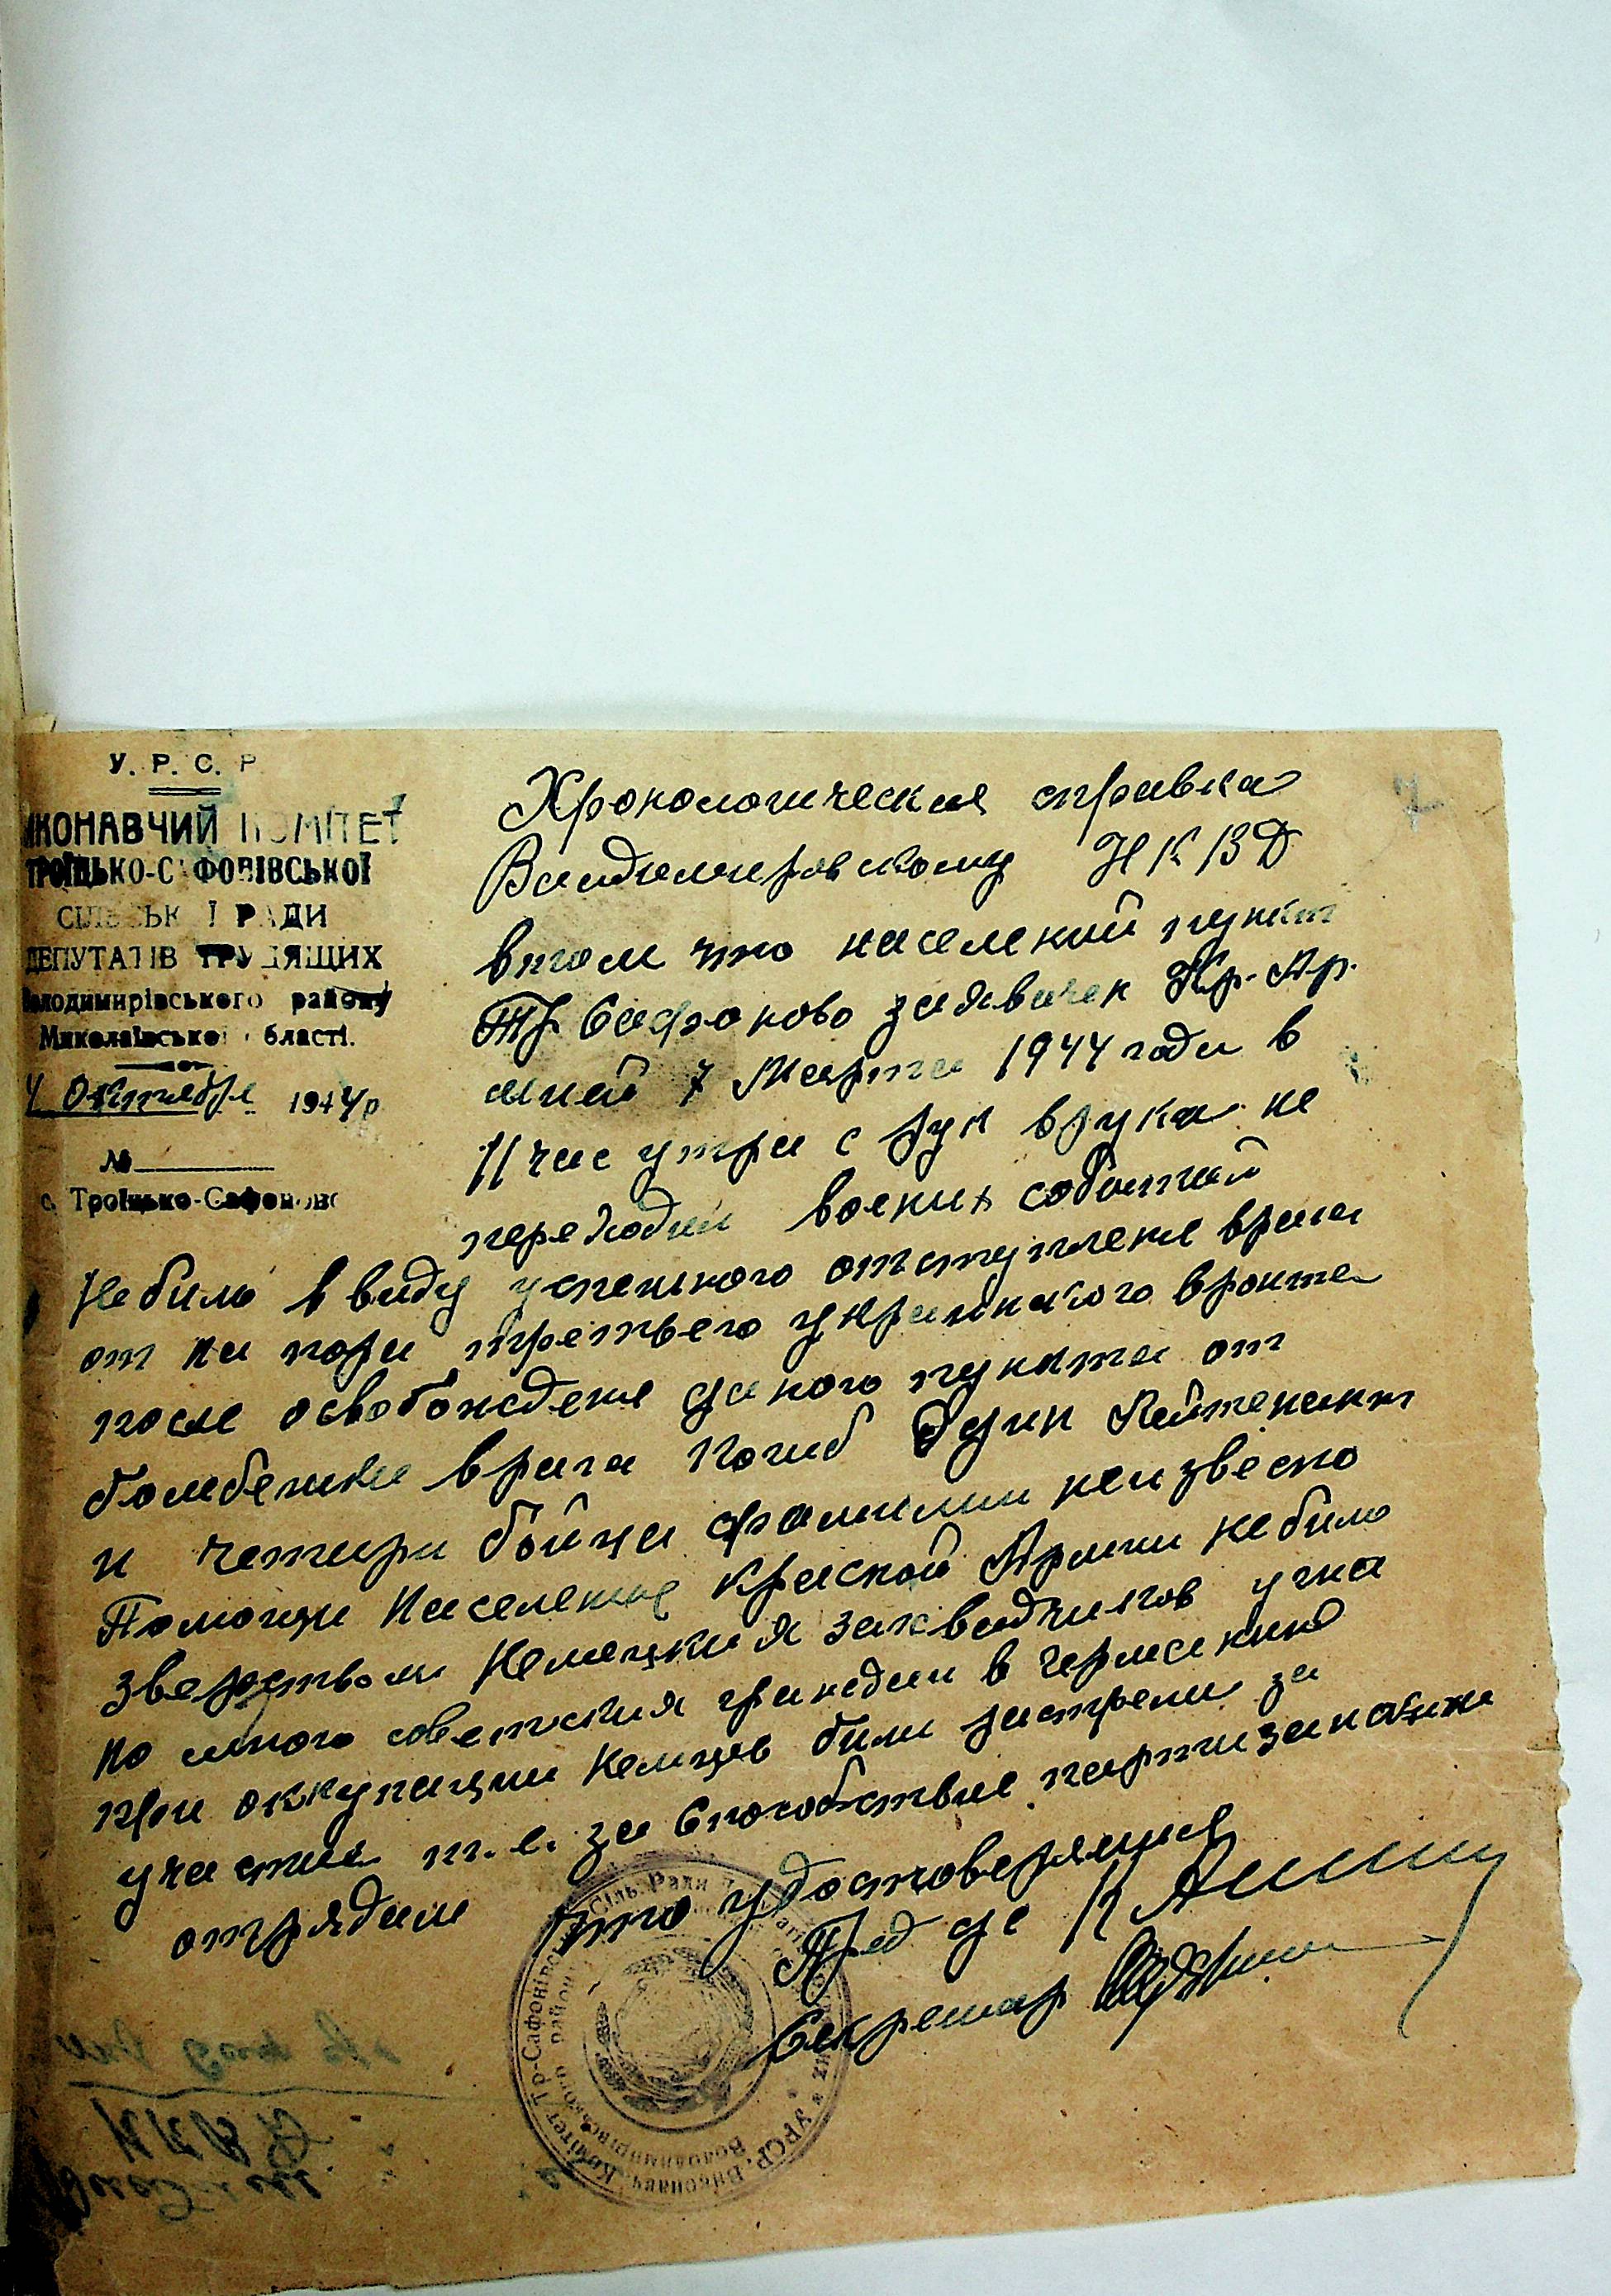 У. Р. С. Р.
ИКОНАВЧИЙ КОМІТЕТ
ТРОЇЦЬКО-САФОНІВСЬКОЇ
СІЛЬСЬКОЇ РАДИ
ДЕПУТАТІВ ТРУДЯЩИХ
Володимирівського району
Миколаївської області.
4 Октября 1944 р
№
с. Троїцько-Сафонове
7
Хронологическая справка
Владимировскому НКВД
втом что населений пункт
Тр Сафоново задявичек Кр. Ар.
мией 7 Марта 1944 года в
11 час утра с рук вруки не
переходил воених событий
Небило в виду успешного отступления врага
от на пора третьего украинского вронта
после освобождения даного пункта от
бомбежки врага погиб один Лейтенант
и четири бойца фамилии неизвесно
Помощи Населения красной Армии небило
зверством Немецкия захвадчиков угна
но много советския граждан в германию
при оккупации немцев били растрели за
участие т.е. за способствие партизанским
отрядам что удостоверяется
Пред с/с
Секретар
НКВД